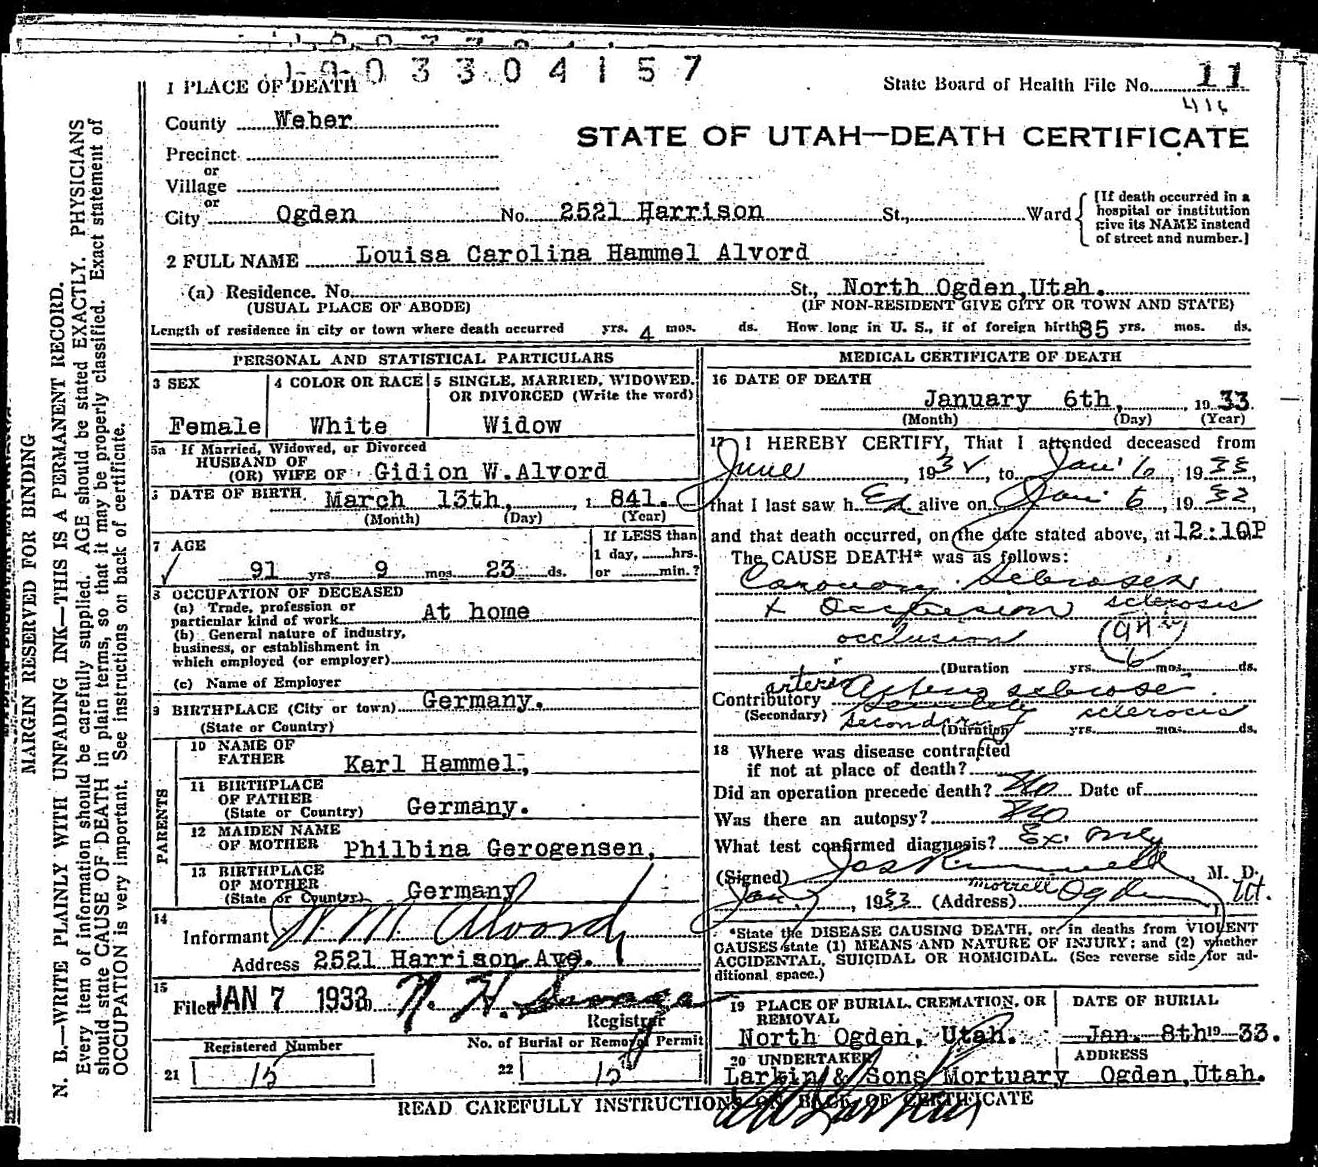 1 9 0 3 3 0 4 1 5 7
1 PLACE OF DEATH
State Board of Health File No. 11
416
County Weber
STATE OF UTAH—DEATH CERTIFICATE
Precinct
or
Village
or
City Ogden No. 2521 Harrison St., Ward
[If death occurred in a hospital or institution give its NAME instead of street and number.]
2 FULL NAME Louisa Carolina Hammel Alvord
(a) Residence. No. St., North Ogden, Utah.
(USUAL PLACE OF ABODE) (IF NON-RESIDENT GIVE CITY OR TOWN AND STATE)
Length of residence in city or town where death occurred yrs. 4 mos. ds. How long in U. S., if of foreign birth 85 yrs. mos. ds.
PERSONAL AND STATISTICAL PARTICULARS
3 SEX
Female
4 COLOR OR RACE
White
5 SINGLE, MARRIED, WIDOWED, OR DIVORCED (Write the word)
Widow
5a If Married, Widowed, or Divorced
HUSBAND OF
(OR) WIFE OF Gidion W.Alvord
DATE OF BIRTH March 13th, 1 841.
(Month) (Day) (Year)
7 AGE
91 yrs. 9 mos. 23 ds.
If LESS than
1 day, hrs.
or min.?
8 OCCUPATION OF DECEASED
(a) Trade, profession or
particular kind of work At home
(b) General nature of industry,
business, or establishment in
which employed (or employer)
(c) Name of Employer
9 BIRTHPLACE (City or town) Germany.
(State or Country)
PARENTS
10 NAME OF FATHER Karl Hammel,
11 BIRTHPLACE OF FATHER (State or Country) Germany.
12 MAIDEN NAME OF MOTHER Philbina Gerogensen,
13 BIRTHPLACE OF MOTHER (State or Country) Germany
14
Informant W. M. Alvord
Address 2521 Harrison Ave.
15
Filed JAN 7 1933 N. H. Savage
Registrar
Registered Number
21 15
No. of Burial or Removal Permit
22 15
MEDICAL CERTIFICATE OF DEATH
16 DATE OF DEATH
January 6th, 1933.
(Month) (Day) (Year)
17 I HEREBY CERTIFY, That I attended deceased from
June, 1932, to Jan 6, 1933,
that I last saw h er alive on Jan 6, 1932
and that death occurred, on the date stated above, at 12:10P
The CAUSE DEATH* was as follows:
Coronary Sclroses
+ Occlusion sclerosis
occlusion
(Duration yrs. 6 mos. ds.
arterio
Contributory Arterio sclrose
(Secondary) Senility sclerosis
secondary
(Duration) yrs. mos. ds.
18 Where was disease contracted
if not at place of death?
Did an operation precede death? No Date of
Was there an autopsy? No
What test confirmed diagnosis? Ex. only
(Signed) Jos R Morrell, M. D.
morrell
Jan 7, 1933 (Address) Ogden, Ut.
*State the DISEASE CAUSING DEATH, or in deaths from VIOLENT
CAUSES state (1) MEANS AND NATURE OF INJURY; and (2) whether
ACCIDENTAL, SUICIDAL OR HOMICIDAL. (See reverse side for ad-
ditional space.)
19 PLACE OF BURIAL, CREMATION, OR REMOVAL
North Ogden, Utah.
DATE OF BURIAL
Jan. 8th 19 33.
20 UNDERTAKER
Larkin & Sons Mortuary
ADDRESS
Ogden, Utah.
READ CAREFULLY INSTRUCTIONS ON BACK OF CERTIFICATE
MARGIN RESERVED FOR BINDING
N. B.—WRITE PLAINLY WITH UNFADING INK—THIS IS A PERMANENT RECORD.
Every item of information should be carefully supplied. AGE should be stated EXACTLY. PHYSICIANS
should state CAUSE OF DEATH in plain terms, so that it may be properly classified. Exact statement of
OCCUPATION is very important. See instructions on back of certificate.